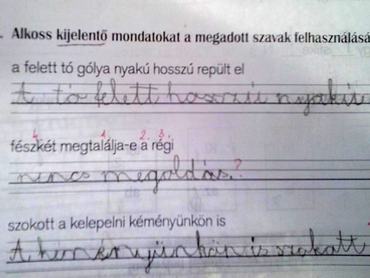 . Alkoss kijelentő mondatokat a megadott szavak felhasználásá
a felett tó gólya nyakú hosszú repült el
A tó felett hosszú nyakú
4. 1. 2. 3.
fészkét megtalálja-e a régi
nincs megoldás.?
szokott a kelepelni kéményünkön is
A is szokott